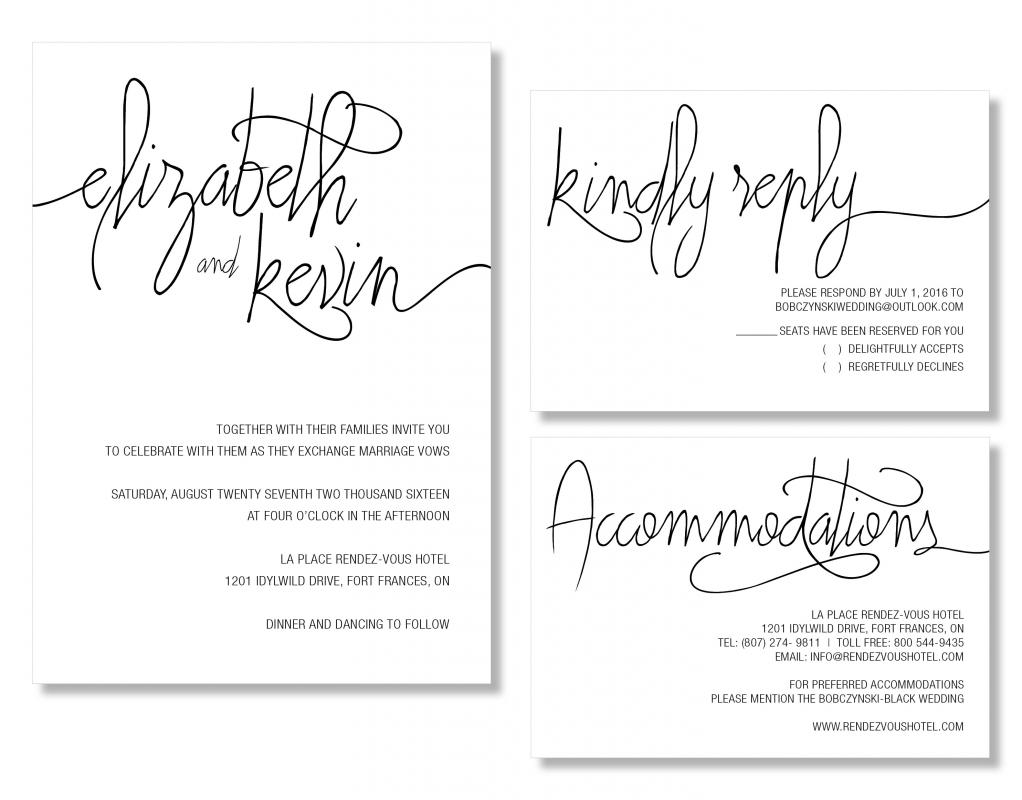 elizabeth
and
kevin
TOGETHER WITH THEIR FAMILIES INVITE YOU
TO CELEBRATE WITH THEM AS THEY EXCHANGE MARRIAGE VOWS
SATURDAY, AUGUST TWENTY SEVENTH TWO THOUSAND SIXTEEN
AT FOUR O'CLOCK IN THE AFTERNOON
LA PLACE RENDEZ-VOUS HOTEL
1201 IDYLWILD DRIVE, FORT FRANCES, ON
DINNER AND DANCING TO FOLLOW
kindly reply
PLEASE RESPOND BY JULY 1, 2016 TO
BOBCZYNSKIWEDDING@OUTLOOK.COM
______ SEATS HAVE BEEN RESERVED FOR YOU
( ) DELIGHTFULLY ACCEPTS
( ) REGRETFULLY DECLINES
Accommodations
LA PLACE RENDEZ-VOUS HOTEL
1201 IDYLWILD DRIVE, FORT FRANCES, ON
TEL: (807) 274- 9811 | TOLL FREE: 800 544-9435
EMAIL: INFO@RENDEZVOUSHOTEL.COM
FOR PREFERRED ACCOMMODATIONS
PLEASE MENTION THE BOBCZYNSKI-BLACK WEDDING
WWW.RENDEZVOUSHOTEL.COM